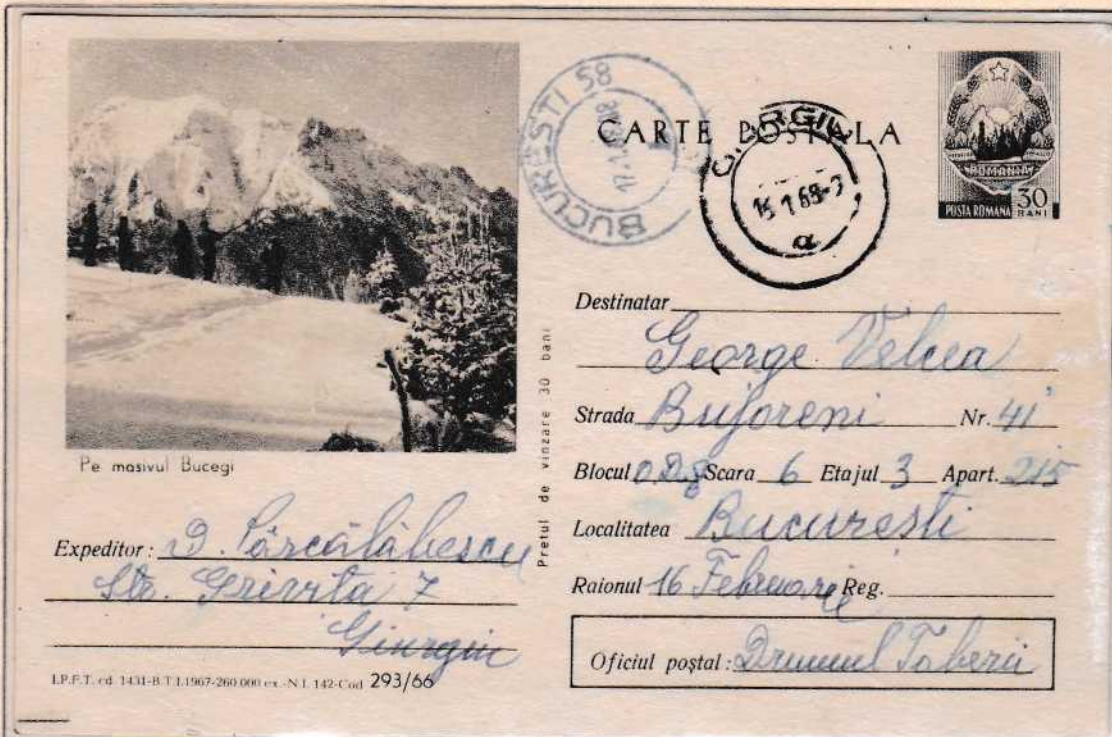 BUCURESTI 58
CARTE POSTALA
ROMANIA
POSTA ROMANA 30 BANI
Pe masivul Bucegi
Pretul de vinzare 30 bani
Destinatar
George Velcea
Strada Bujoreni Nr. 41
Blocul Scara 6 Etajul 3 Apart. 215
Localitatea Bucuresti
Raionul 16 Februarie Reg.
Oficiul poștal: Drumul Taberii
Expeditor: D. Pârcălăbescu
Str. Grivita 7
Giurgiu
I.P.F.T. cd. 1431-B.T.1.1967-260.000 ex.-N.I. 142-Cod 293/66